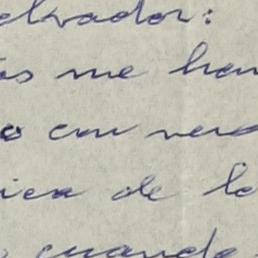 lvador:
as me han
o con verd
ica de la
cuando